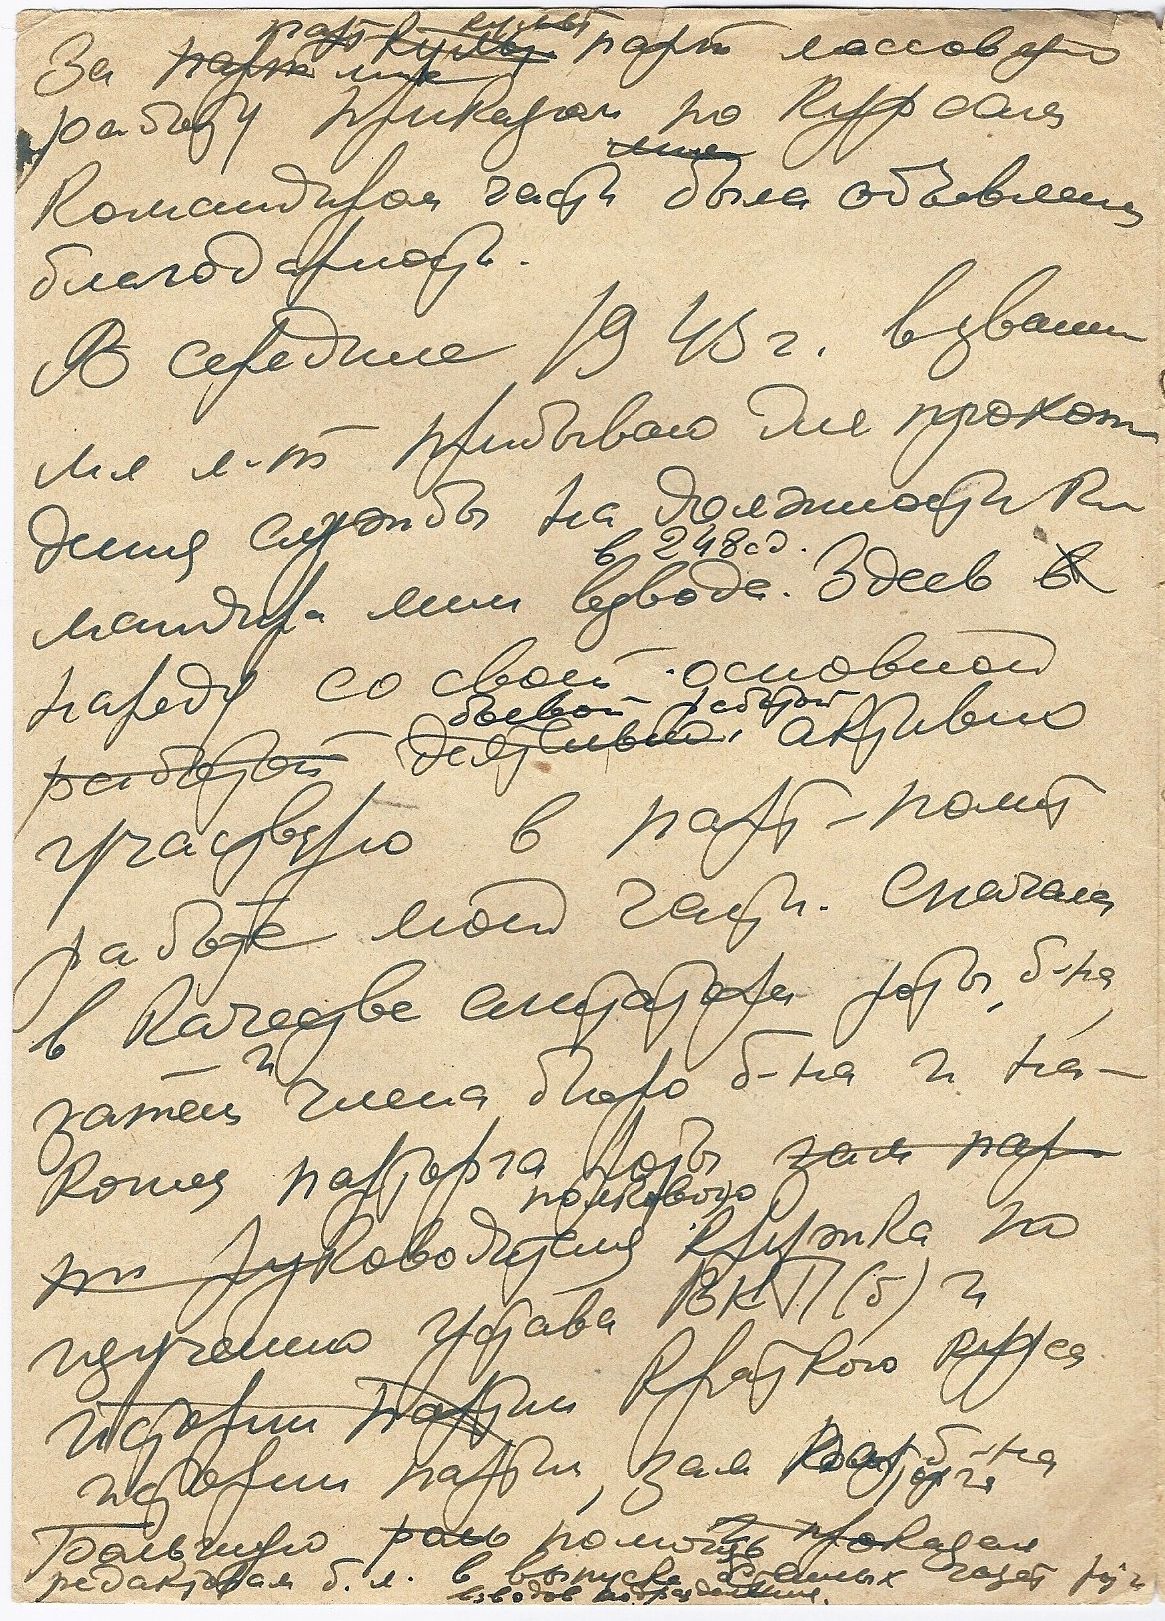 парт культ
За парт массовую
работу приказом по курсам
командиром части была объявлена
благодарность.
В середине 1945 г. в звании
мл л-та прибываю для прохож
дения службы на должность ко
в 248 сд.
мандира мин взвода. Здесь
наряду со своей основной
боевой работой
работой активно
участвую в парт-полит
работе моей части. Сначала
в качестве агитатора роты, б-на,
и
затем члена бюро б-на и на-
конец парторга роты зам пар
полкового
руководителя кружка по
изучению устава ВКП(б) и
истории партии краткого курса
истории партии, зам б-на
парторга
Большую роль помощь показал
редакторам б. л. в выпуске газет
взводов подразделения.